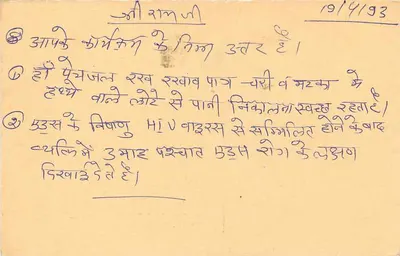 श्री रामजी
19/4/93
आपके कार्यक्रम के निम्न उत्तर है।
① हाँ पेयजल रख रखाव पात्र चरी व मटका मे
हत्थे वाले लोटे से पानी निकालना स्वच्छ रहता है।
② एड्स के विषाणु HIV वाइरस से सम्मिलित होने के बाद
व्यक्ति में 3 माह पश्चात एड्स रोग के लक्षण
दिखाई देते है।